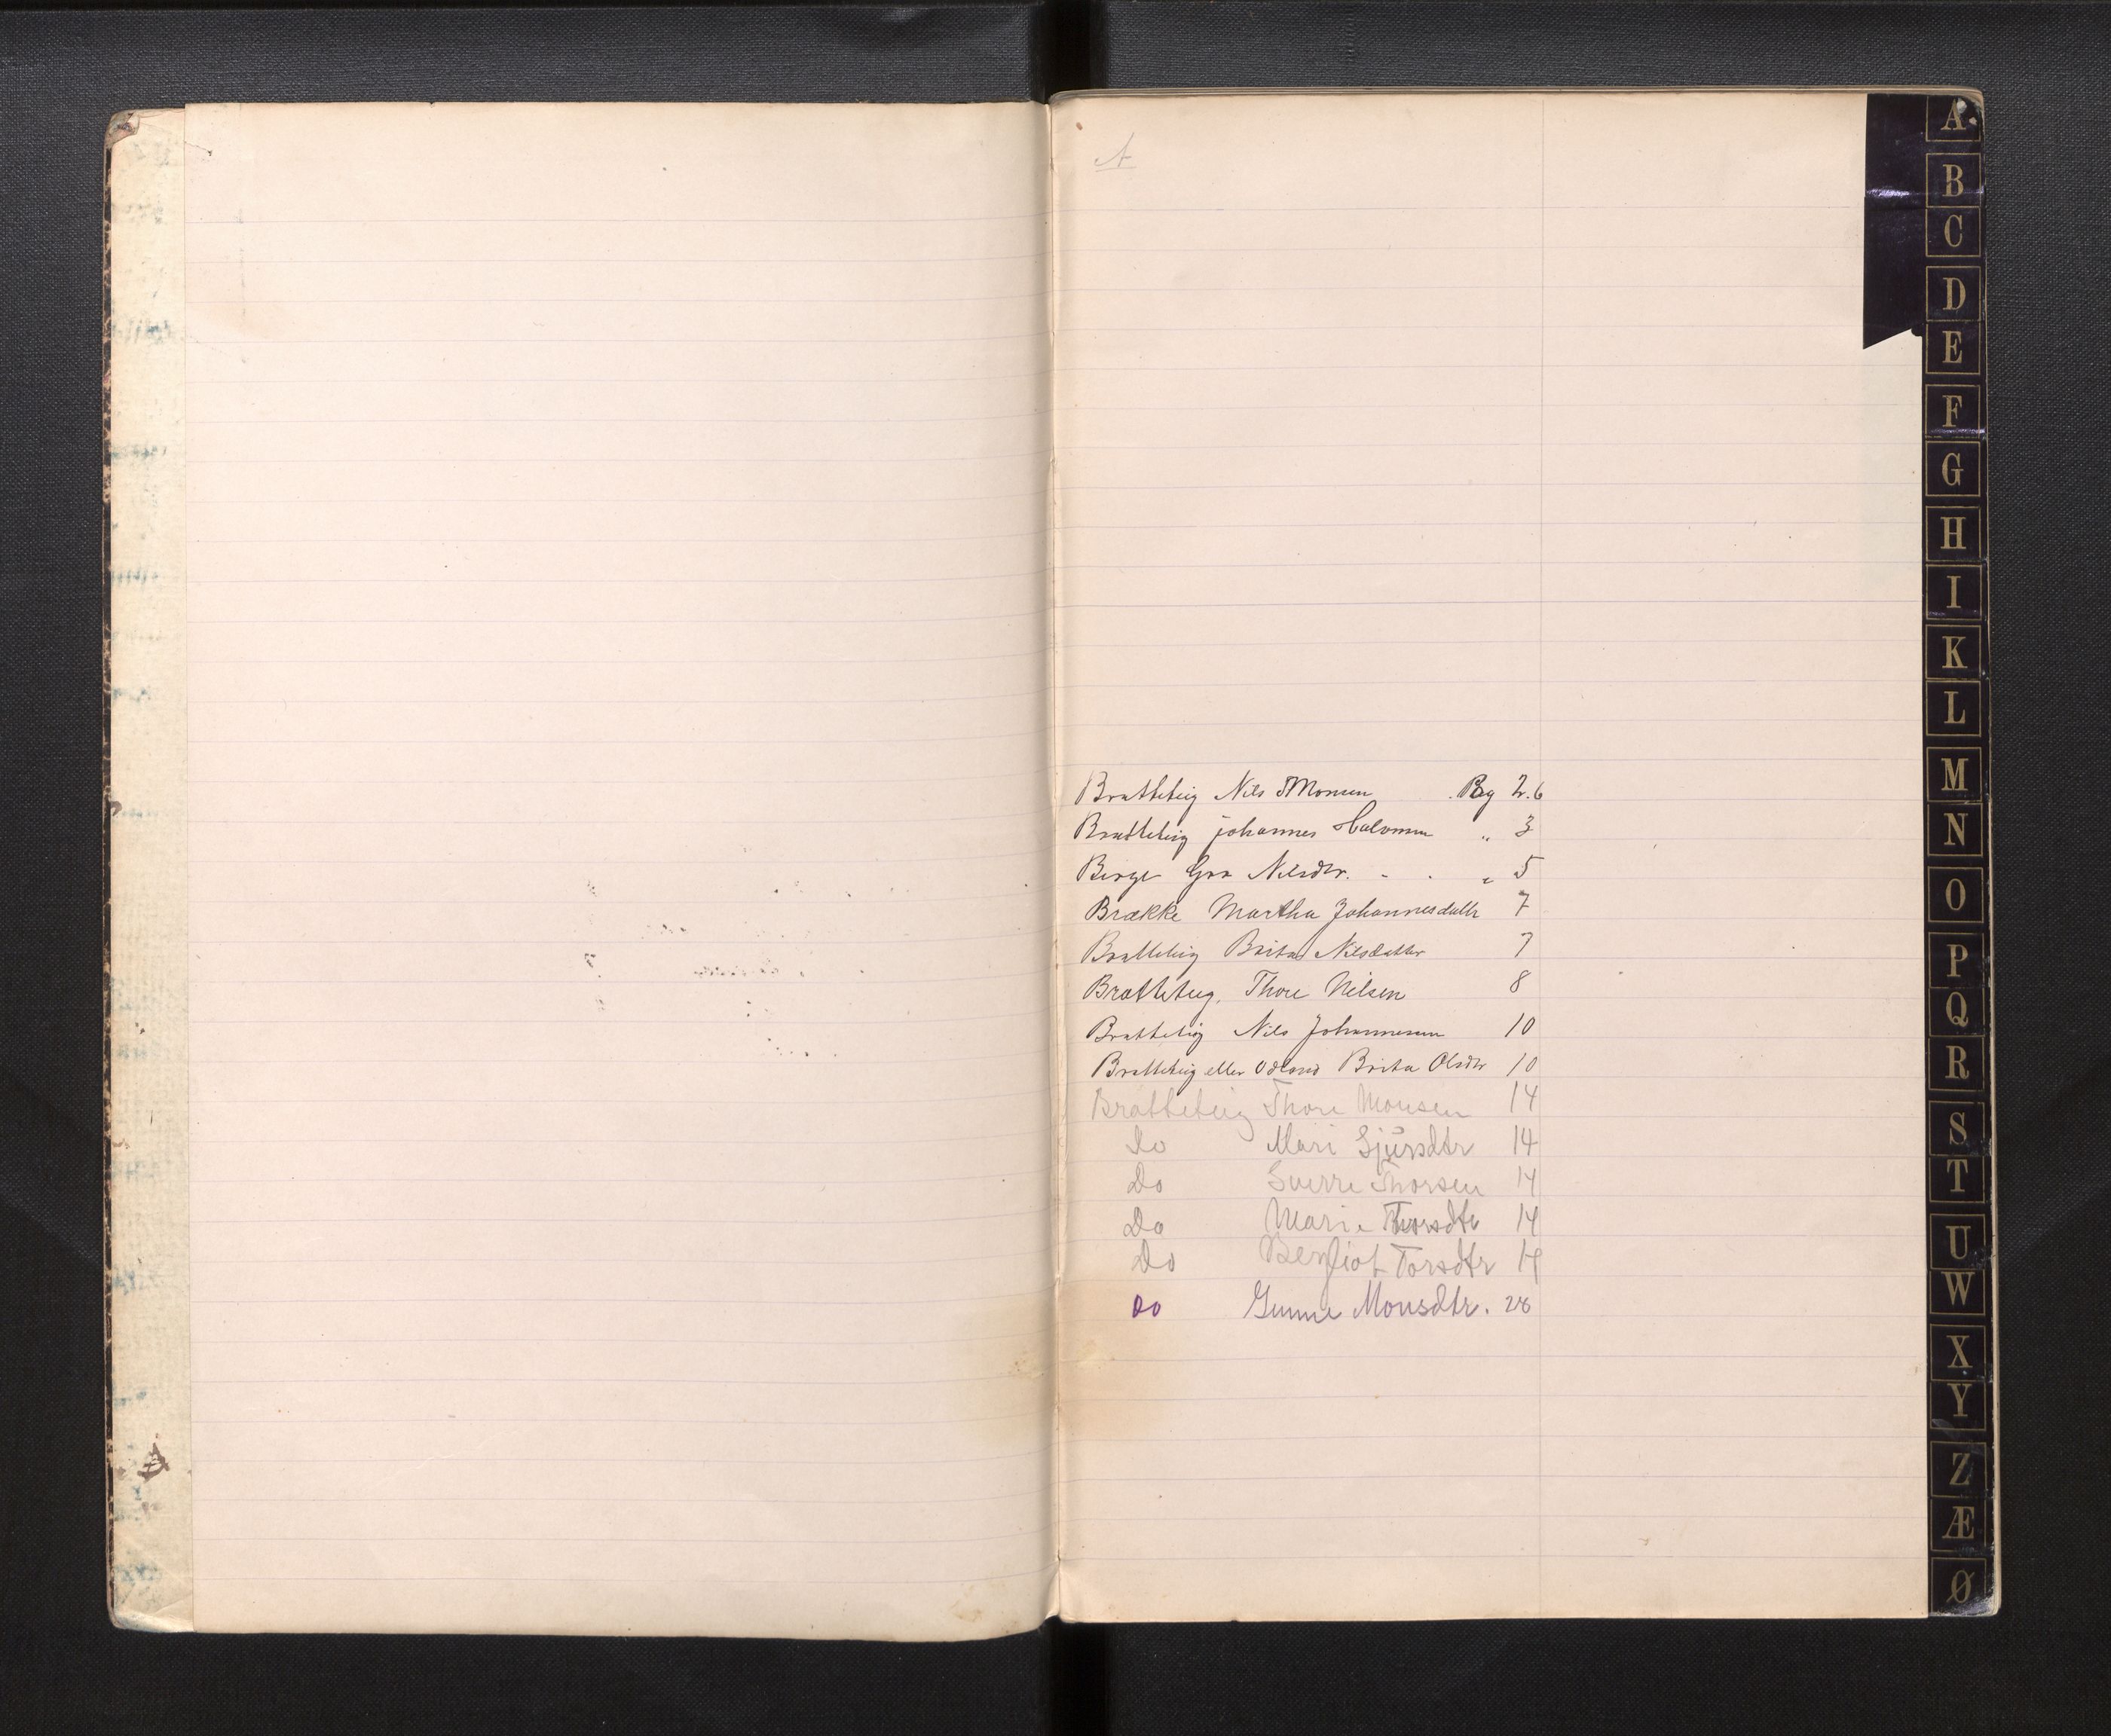 A
Bratteteig Nils Monsen Pag 2.6
Bratteteig Johannes Halvorsen " 3
Berge Guro Nilsdtr. - . " 5
Brække Martha Johannesdattr 7
Bratteteig Brita Nilsdatter 7
Bratteteig. Thore Nilsen 8
Bratteteig Nils Johannessen 10
Bratteteig eller Odland Brita Olsdtr 10
Bratteteig Thore Monsen 14
Do Mari Sjursdtr 14
Do Sverre Thorsen 14
Do Marie Thorsdtr 14
Do Bergliot Torsdtr 14
Do Gunne Monsdtr. 28
A
B
C
D
E
F
G
H
I
K
L
M
N
O
P
Q
R
S
T
U
W
X
Y
Z
Æ
Ø